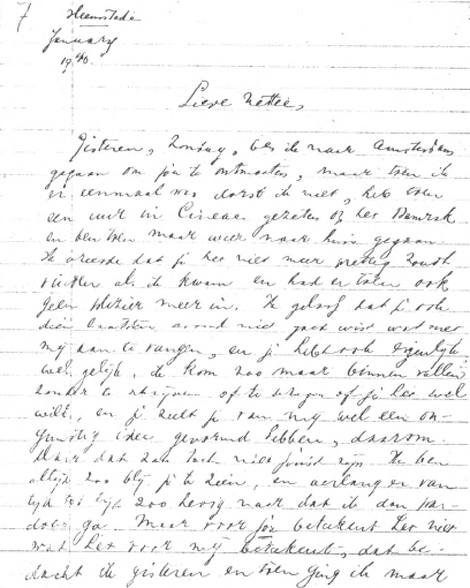 7 Heemstede
January
1940.
Lieve Nettie,
Gisteren, Zondag, ben ik naar Amsterdam
gegaan om jou te ontmoeten, maar toen ik
er eenmaal was dorst ik niet, heb even
een uur in Cineac gezeten op het Damrak
en ben toen maar weer naar huis gegaan.
Ik vreesde dat je het niet meer prettig zoudt
vinden als ik kwam en had er toen ook
geen plezier meer in. Ik geloof dat je ook
dien laatsten avond niet goed wist wat met
mij aan te vangen, en je hebt ook eigenlijk
wel gelijk, ik kom zoo maar binnen vallen
zonder te schrijven of te vragen of je het wel
wilt, en je zult je van mij wel een on-
gunstig idee gevormd hebben, daarom.
Maar dat zou toch niet juist zijn. Ik ben
altijd zoo blij je te zien, en verlang er van
tijd tot tijd zoo hevig naar dat ik dan par-
does ga. Maar voor jou beteekent het niet
wat het voor mij beteekent, dat be-
dacht ik gisteren en toen ging ik maar